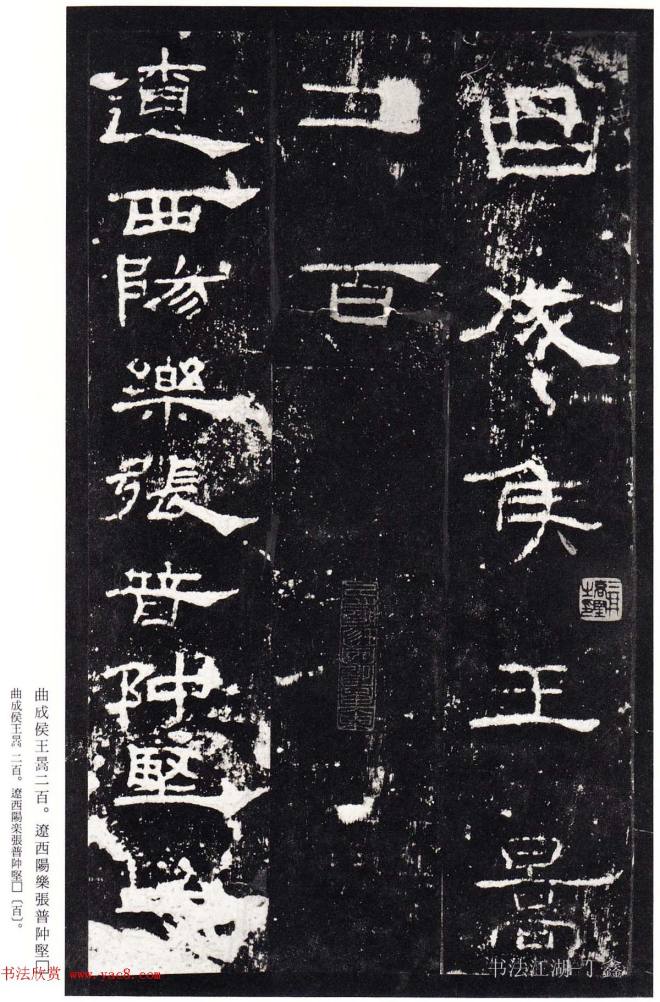 曲成侯王暠
二百
遼西陽樂張普仲堅
曲成侯王暠二百。遼西陽樂張普仲堅□
曲成侯王暠 二百。遼西陽楽張普仲堅□〔百〕。
书法欣赏 www.yac8.com
书法江湖-丁鑫